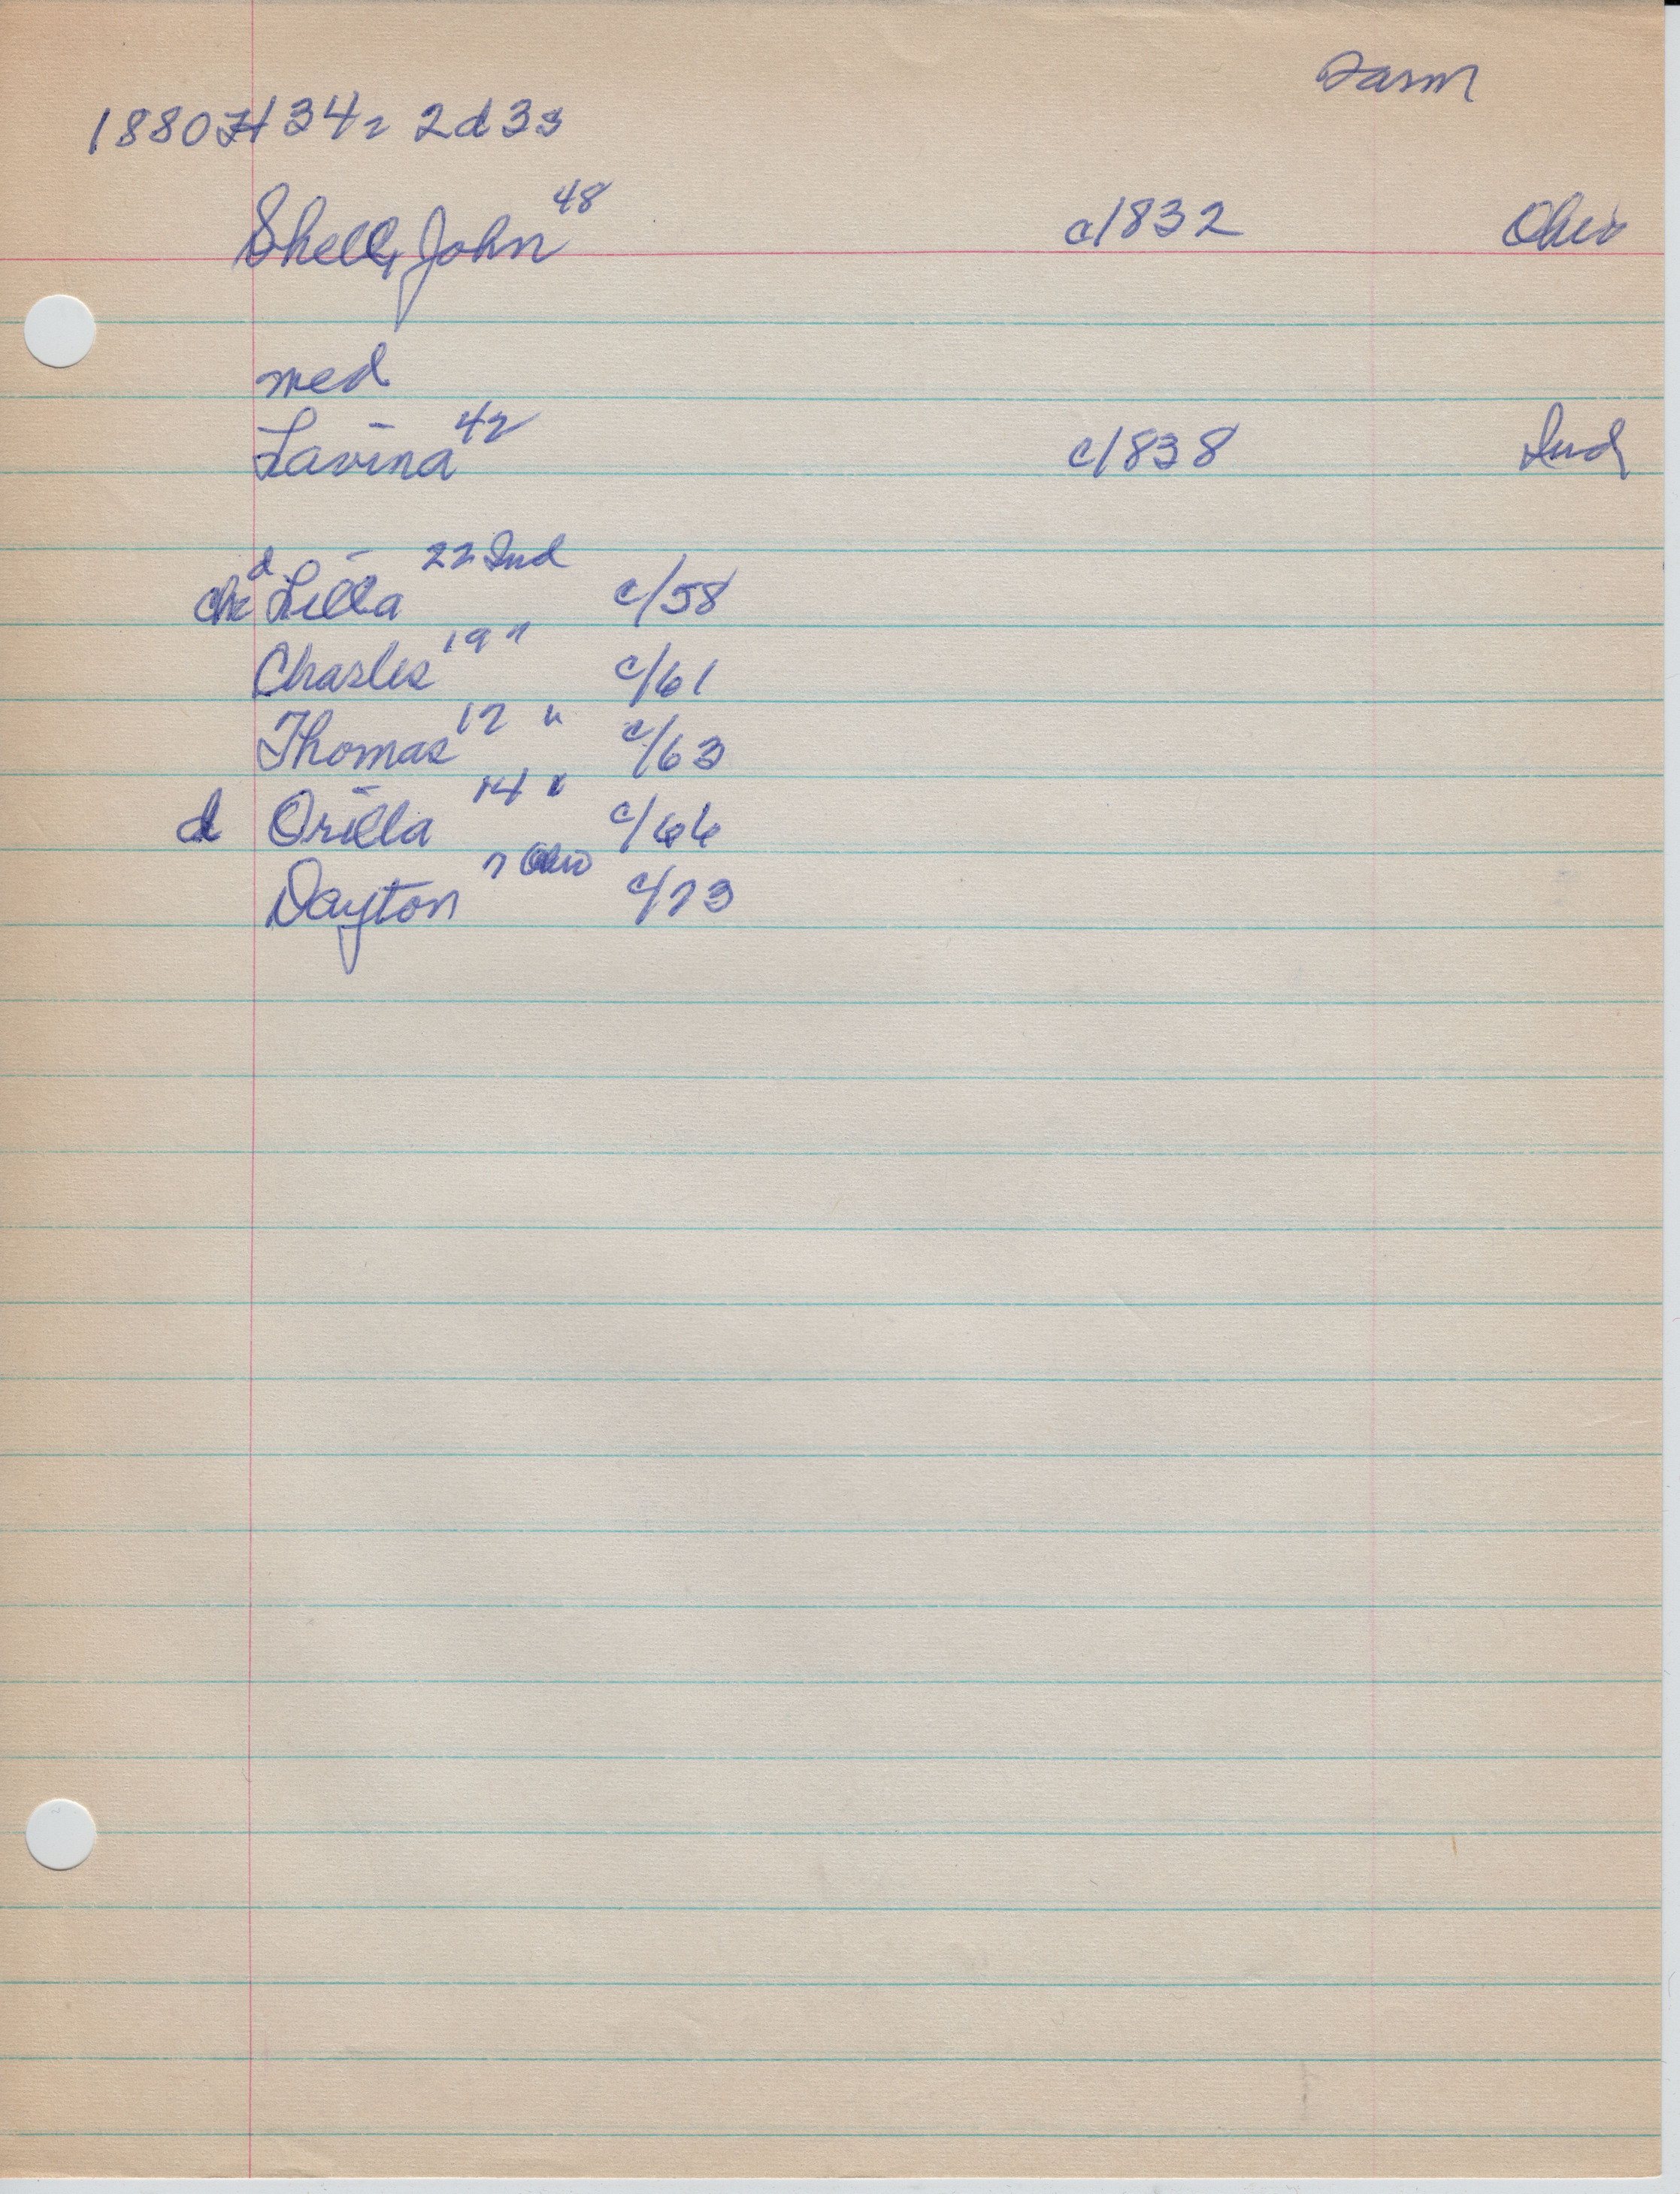 Farm
1880 H 34r 2d 3s
Shell, John 48 c/1832 Ohio
med
Lavina 42 c/1838 Ind
ch d Lilla 22 Ind c/58
Charles 19 " c/61
Thomas 17 " c/63
d Orilla 14 " c/66
Dayton 7 Ohio c/73